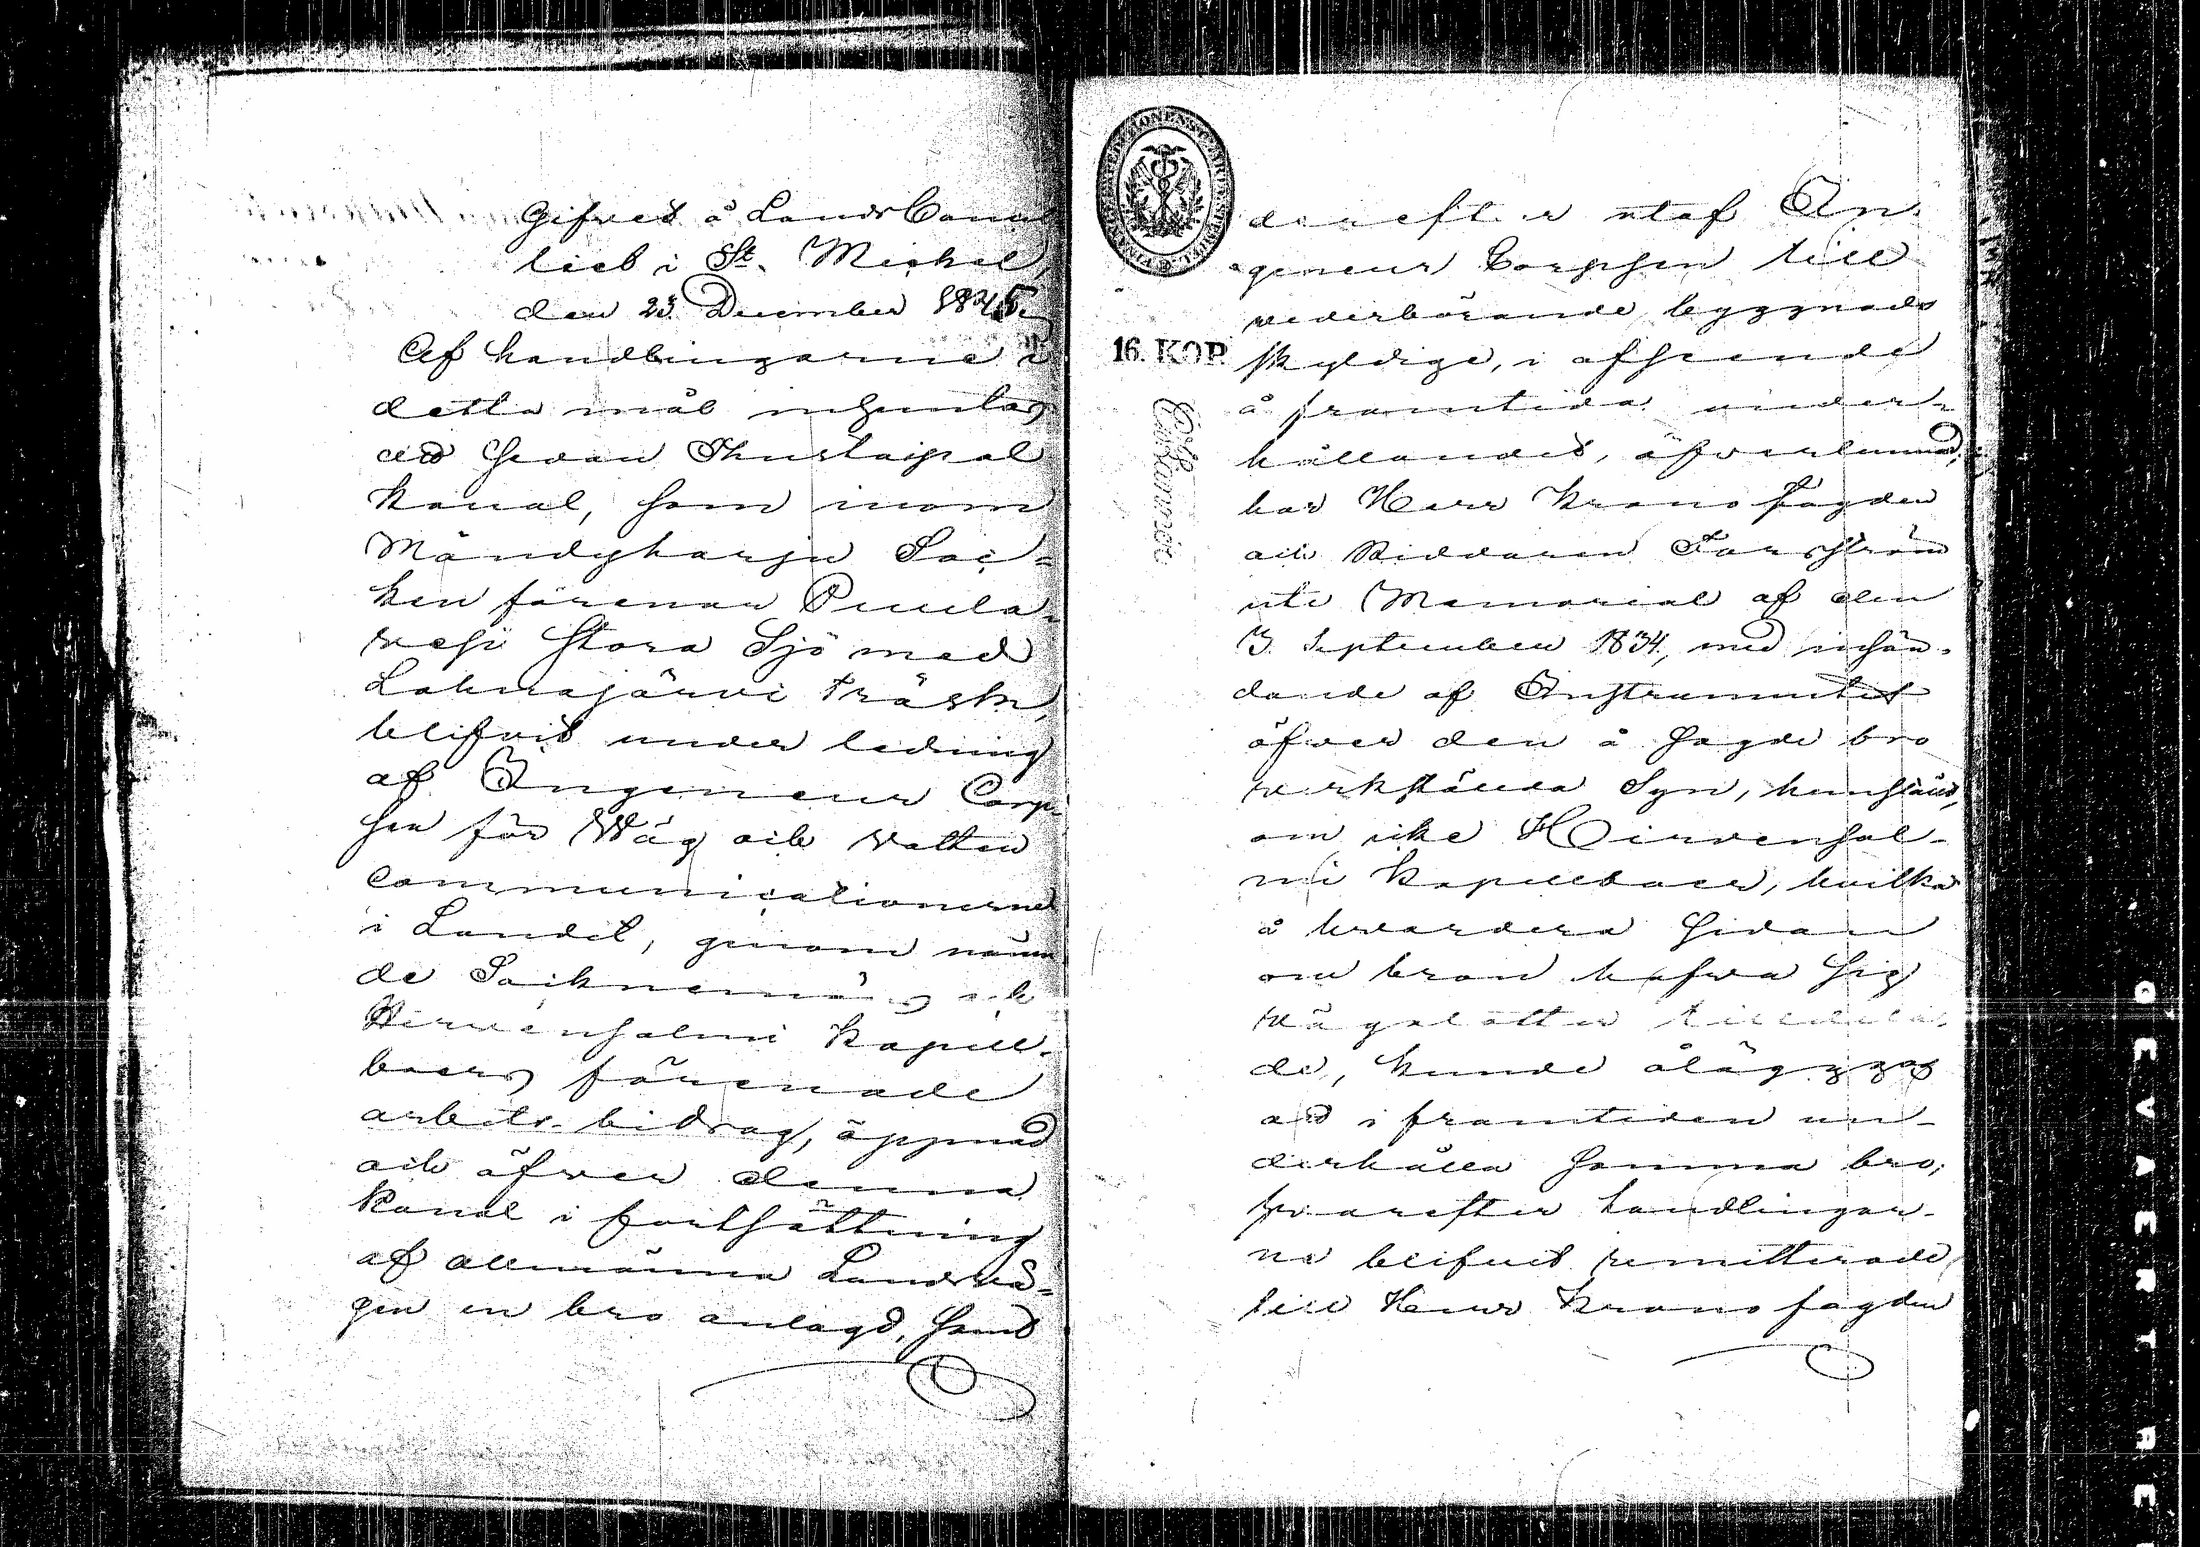 Gifvet å LandsCansl
lieb i St. Michel,
den 23 December 1845
Af handlingarne i
detta mål inhämtas
att sedan Kuustaipal
kanal, som inom
Mändyharju Soc-
ken förenar Puula
vesi stora Sjö med
Lahnajärvi träsk,
blifvit under ledning
af Ingenieur Corp
sen för Wäg och vatten
communicationerne
i Landet, genom nämn
de Socknemäns och
Hirvensalmi Kapell-
boers förenade
arbets-bidrag, öppnad
och öfver denna
Kanal i fortsättning
af allmänna Landsvä-
gen en bro anlagd, samt
derefter utaf In-
genieur Corpsen till
vederbörande byggnads
skyldige, i afseende
å framtida under-
hållandet, öfverlemnad,
har Herr Krono Fogden
och Riddaren Forsström
uti Memorial af den
3 September 1834, med insän-
dande af Instrumentet
öfver den å sagde bro
verkställda Syn, hemställt,
om icke Hirvensal-
mi Kapellboer, hvilka
å hvardera sidan
om bron hafva sig
väga lotter tilldela-
de, kunde åläggas
att i framtiden un-
derhålla samma bro,
hvarefter handlingar-
ne blifvit remitterade
till Herr Krono fogden
16. KOP.
GEVAERT RE